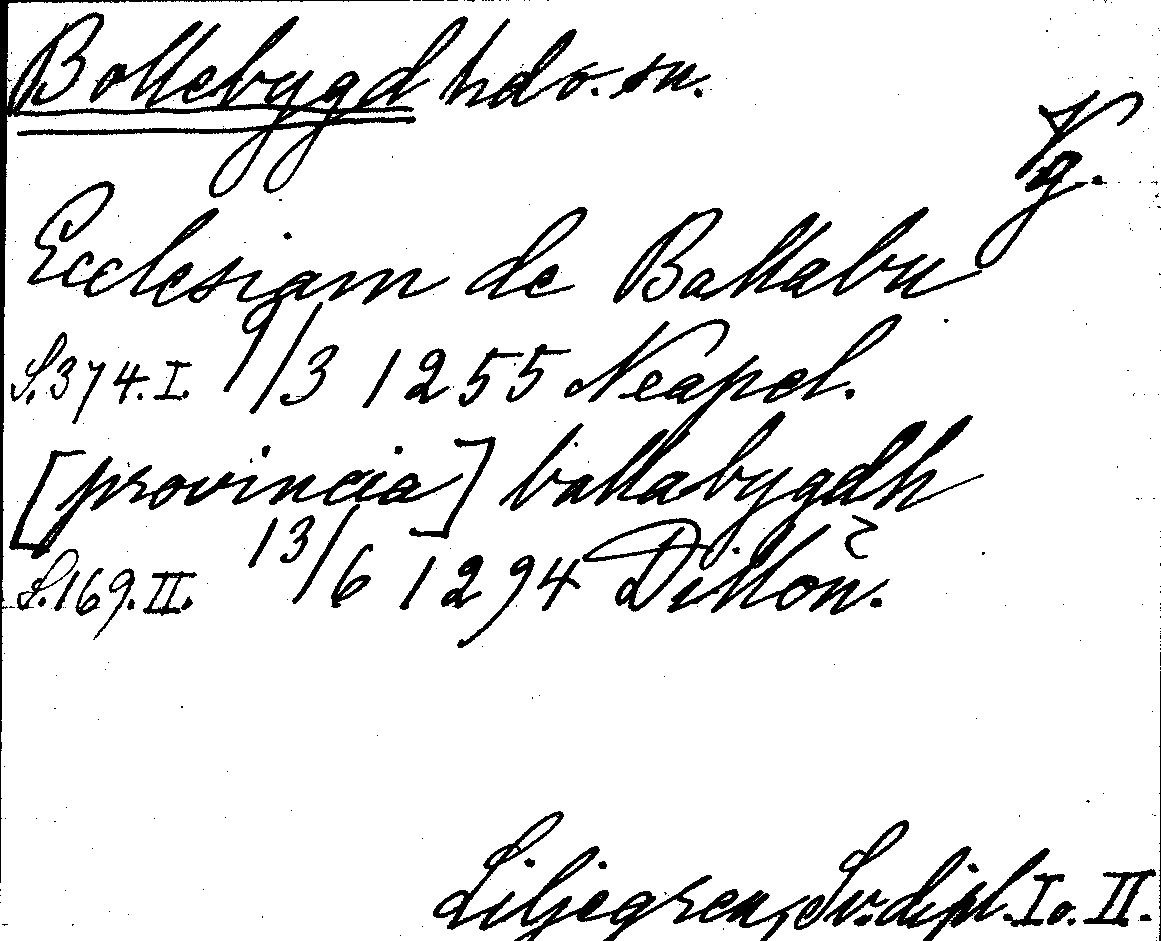 Bollebygd hd o. sn.
Vg.
Ecclesiam de Ballabu
S. 374. I. 9/3 1255 Neapel.
[provincia] ballabygdh
S. 169. II. 13/6 1294
Liljegren, Sv. dipl. I o. II.